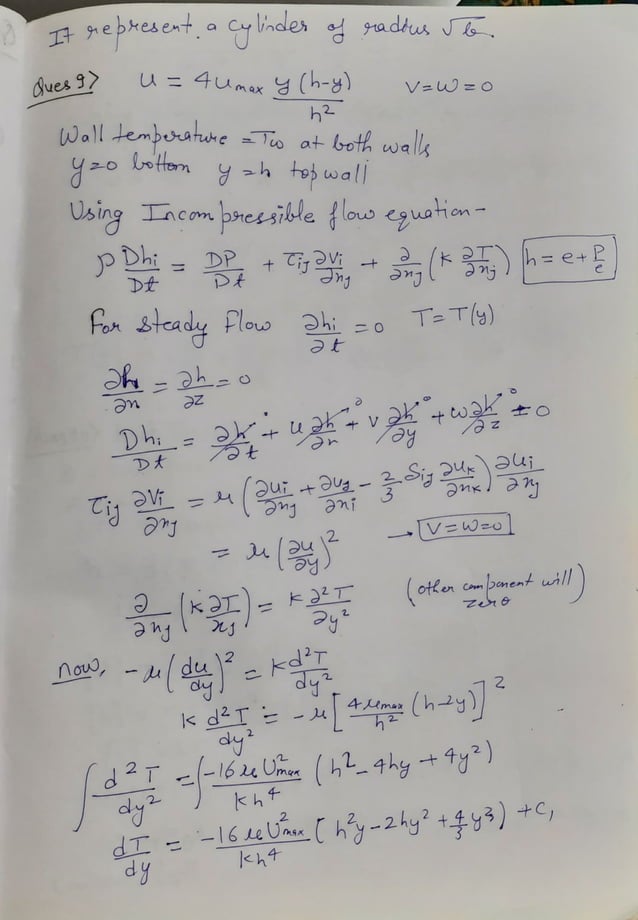 It represent a cylinder of radius √b.
Ques 9> u = 4umax y(h-y)/h² V=W=0
Wall temperature = Tw at both walls
y=0 bottom y=h top wall
Using Incompressible flow equation-
ρ Dhi/Dt = DP/Dt + τij ∂Vi/∂xj + ∂/∂xj (K ∂T/∂xj) h = e + P/e
For steady flow ∂hi/∂t = 0 T=T(y)
∂h/∂x = ∂h/∂z = 0
Dhi/Dt = ∂h/∂t + u ∂h/∂x + v ∂h/∂y + w ∂h/∂z = 0
τij ∂Vi/∂xj = μ (∂ui/∂xj + ∂uj/∂xi - 2/3 Sij ∂uk/∂xk) ∂ui/∂xj
= μ (∂u/∂y)² → V=W=0
∂/∂xj (K ∂T/xj) = K ∂²T/∂y² (other component will zero)
now, -μ (du/dy)² = K d²T/dy²
K d²T/dy² = -μ [4umax/h² (h-2y)]²
∫ d²T/dy² = ∫ -16 μ U²max/Kh⁴ (h² - 4hy + 4y²)
dT/dy = -16 μ U²max/Kh⁴ [h²y - 2hy² + 4/3 y³) + C₁